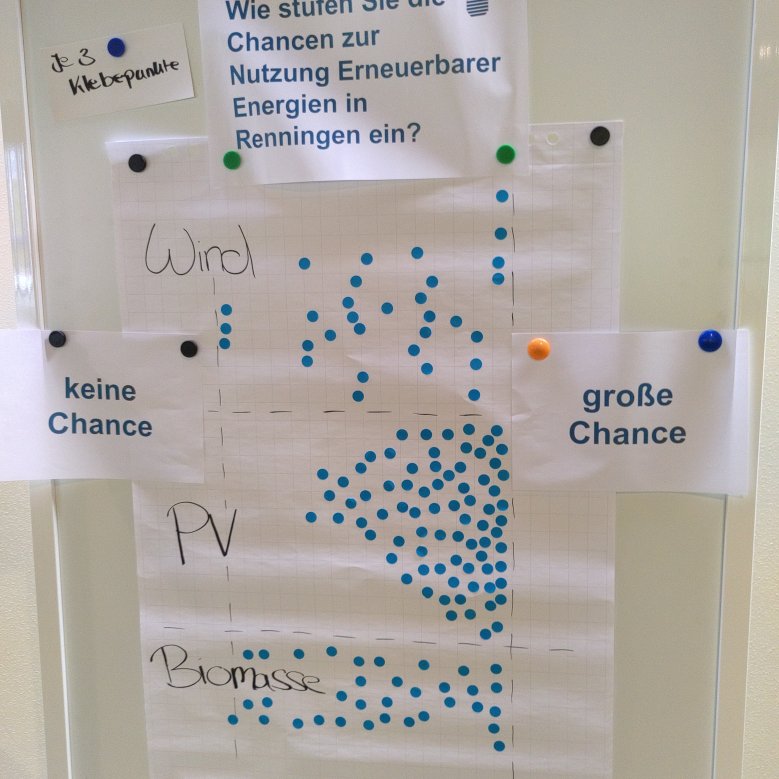 Wie stufen Sie die
Chancen zur
Nutzung Erneuerbarer
Energien in
Renningen ein?
je 3
Klebepunkte
Wind
keine
Chance
große
Chance
PV
Biomasse